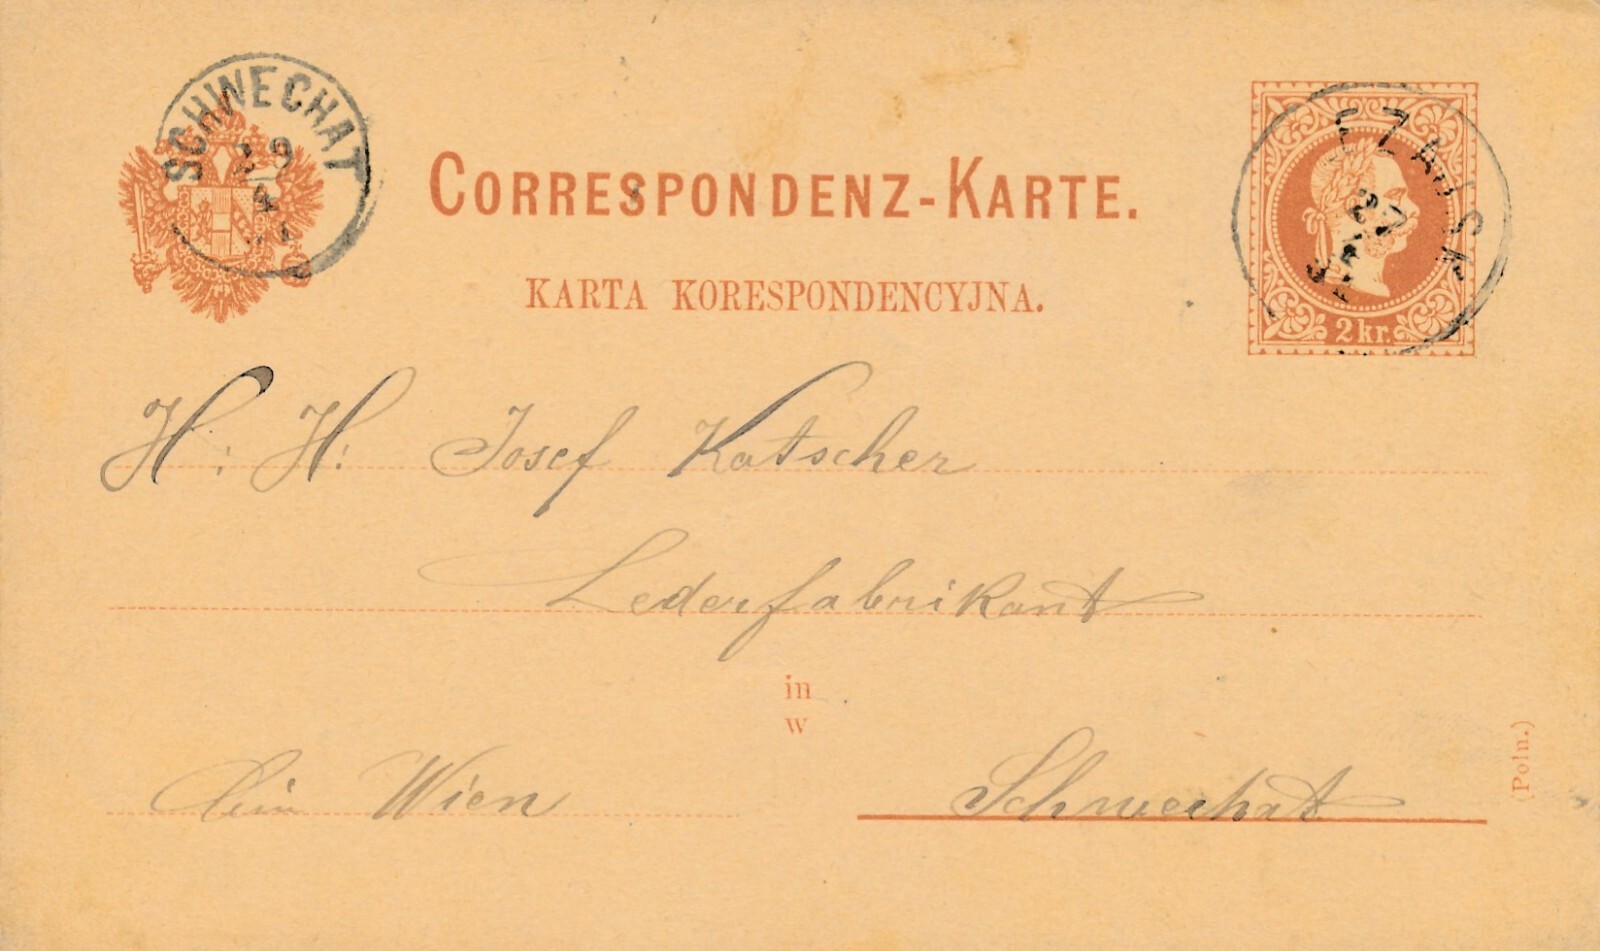 SCHWECHAT
29
4
CORRESPONDENZ-KARTE.
KARTA KORESPONDENCYJNA.
2 kr.
27
H: H: Josef Katscher
Lederfabrikant
in
w
bei Wien
Schwechat
(Poln.)